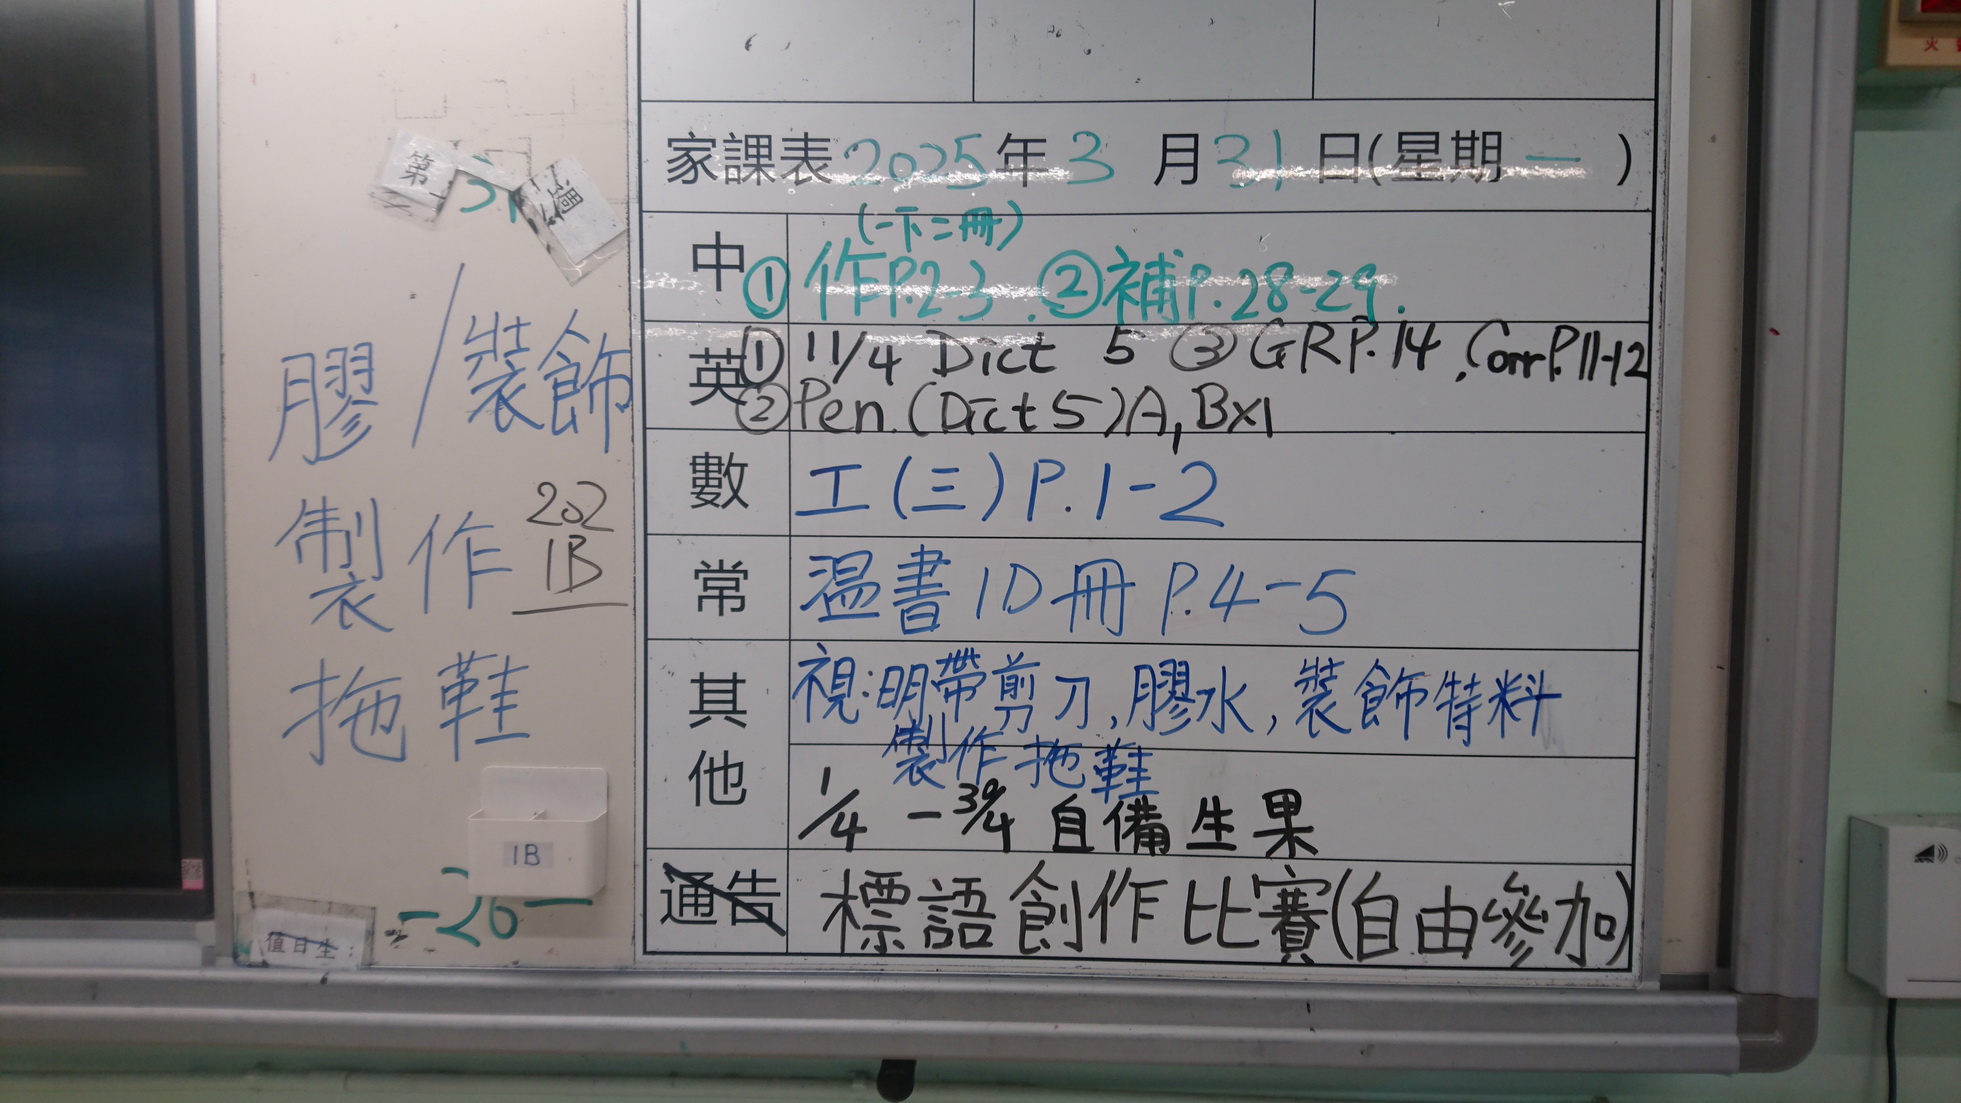 第 31 週
膠/裝飾
製作
202
1B
拖鞋
1B
-26-
值日生：
家課表2025年3月31日(星期一)
中
(一下二冊)
①作P.2-3.②補P.28-29.
英
①11/4 Dict 5 ③GRP.14, Corr P.11-12
②Pen.(Dict 5)A,Bx1
數
工(三)P.1-2
常
溫書1D冊P.4-5
其他
視:明帶剪刀,膠水,裝飾特料
製作拖鞋
1/4-30/4自備生果
通告
標語創作比賽(自由參加)
火